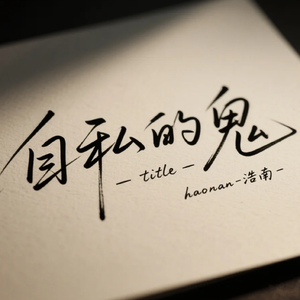 自私的鬼
— title —
haonan-浩南-